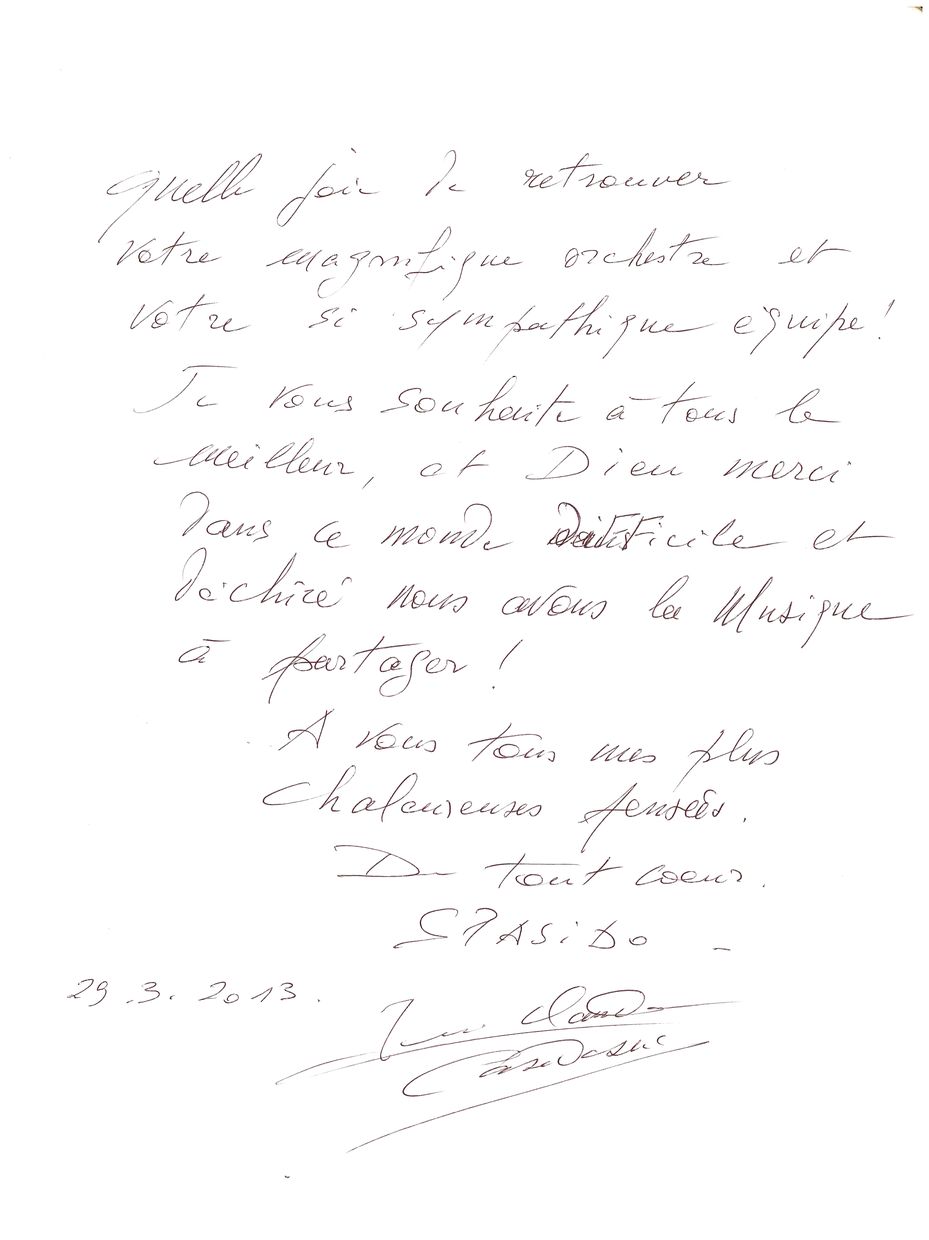 Quelle joie de retrouver
votre magnifique orchestre et
votre si sympathique équipe !
Je vous souhaite à tous le
meilleur, et Dieu merci
dans ce monde difficile et
déchiré nous avons la Musique
à partager !
A vous tous mes plus
chaleureuses pensées.
De tout coeur.
SPASiBO -
29.3.2013.
Jean Claude
Casadesus